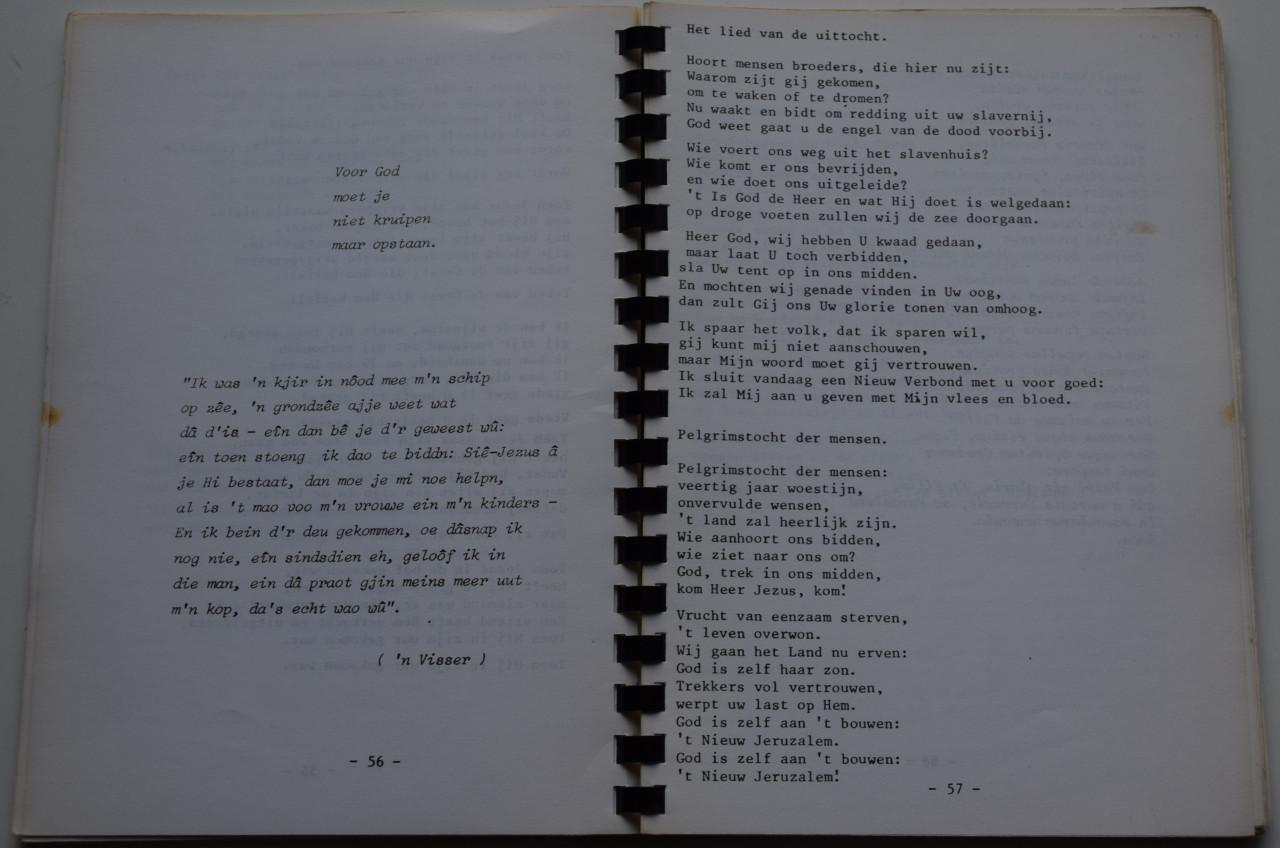 Voor God
moet je
niet kruipen
maar opstaan.
"Ik was 'n kjir in nôod mee m'n schip
op zêe, 'n grondzêe ajje weet wat
dâ d'is - eîn dan bê je d'r geweest wû:
eîn toen stoeng ik dao te biddn: Siê-Jezus â
je Hi bestaat, dan moe je mi noe helpn,
al is 't mao voo m'n vrouwe ein m'n kinders -
En ik bein d'r deu gekommen, oe dâsnap ik
nog nie, eîn sindsdien eh, geloôf ik in
die man, ein dâ praot gjin meins meer uut
m'n kop, da's echt wao wû".
( 'n Visser )
- 56 -
Het lied van de uittocht.
Hoort mensen broeders, die hier nu zijt:
Waarom zijt gij gekomen,
om te waken of te dromen?
Nu waakt en bidt om redding uit uw slavernij,
God weet gaat u de engel van de dood voorbij.
Wie voert ons weg uit het slavenhuis?
Wie komt er ons bevrijden,
en wie doet ons uitgeleide?
't Is God de Heer en wat Hij doet is welgedaan:
op droge voeten zullen wij de zee doorgaan.
Heer God, wij hebben U kwaad gedaan,
maar laat U toch verbidden,
sla Uw tent op in ons midden.
En mochten wij genade vinden in Uw oog,
dan zult Gij ons Uw glorie tonen van omhoog.
Ik spaar het volk, dat ik sparen wil,
gij kunt mij niet aanschouwen,
maar Mijn woord moet gij vertrouwen.
Ik sluit vandaag een Nieuw Verbond met u voor goed:
Ik zal Mij aan u geven met Mijn vlees en bloed.
Pelgrimstocht der mensen.
Pelgrimstocht der mensen:
veertig jaar woestijn,
onvervulde wensen,
't land zal heerlijk zijn.
Wie aanhoort ons bidden,
wie ziet naar ons om?
God, trek in ons midden,
kom Heer Jezus, kom!
Vrucht van eenzaam sterven,
't leven overwon.
Wij gaan het Land nu erven:
God is zelf haar zon.
Trekkers vol vertrouwen,
werpt uw last op Hem.
God is zelf aan 't bouwen:
't Nieuw Jeruzalem.
God is zelf aan 't bouwen:
't Nieuw Jeruzalem!
- 57 -